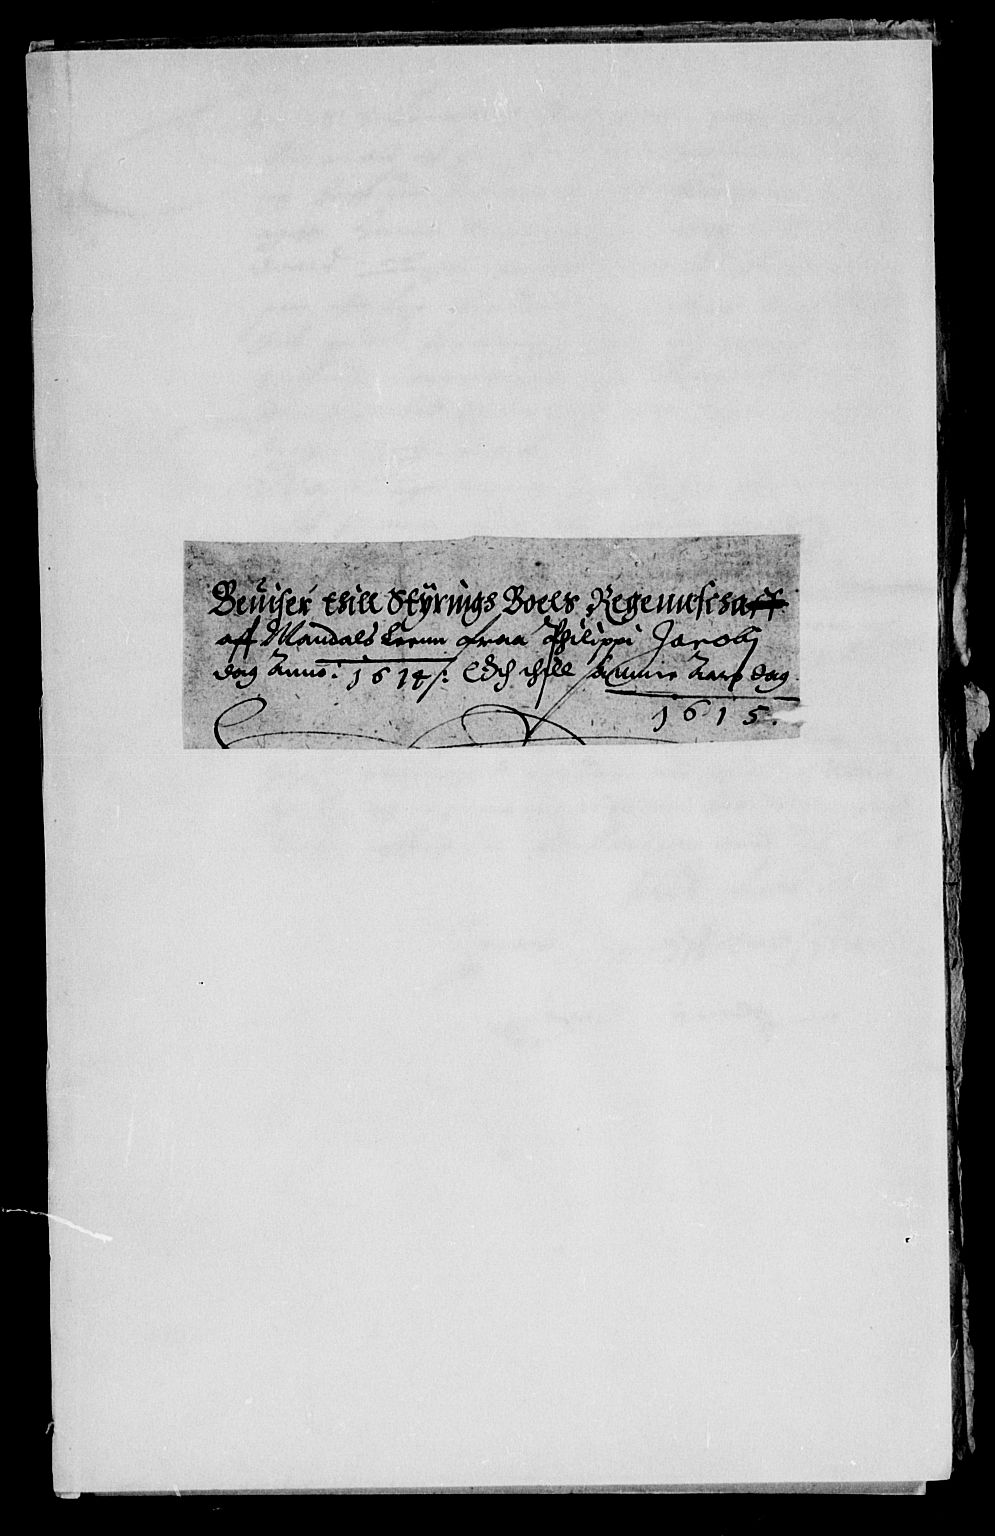 Beuiser thill Styrings Boels Regennschaff
aff Mandals Leenn fraa Philippi Jacobj
dag Anno: 1614: Och thill samme Aars dag
1615.